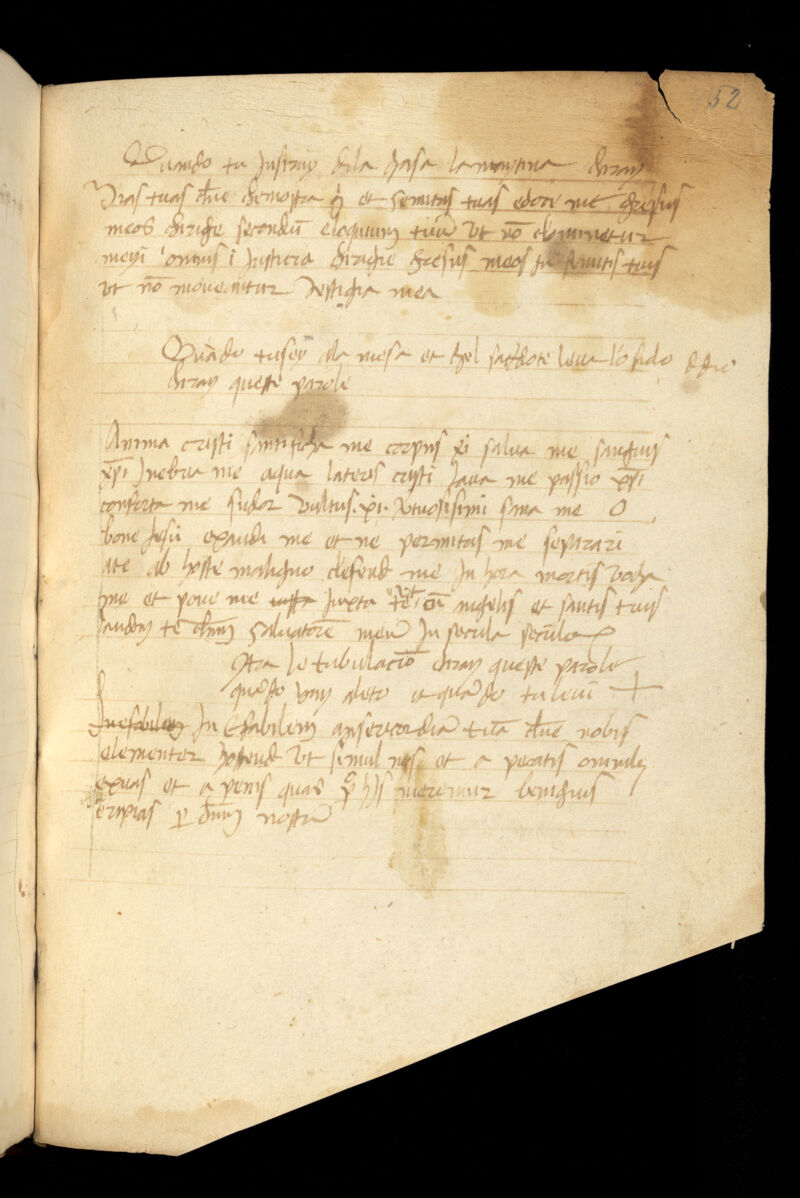 52
Quando tu insiray dela chasa la maytina diray
Vias tuas dñe demostra et semitas tuas edoce me gresus
meos dirige secondũ eloquium tuũ ut nõ dominetur
mey omnis i Justicia dirige gresus meos in semitis tuis
ut nõ moveantur vestigia mea
Quãdo tu seri ala mesa et chel sacerdote leva lo sido ddio
diray queste parole
Anima cristi santificha me corpus xi salva me sanguis
xpi Inebria me aqua lateris cristi lava me passio xpi
conforta me sudor vultus xpi vtuosisimi sana me O
bone Jesu exaudi me et ne permitas me separari
a te ab hoste maligno defend me In hora mortis vocha
me et pone me iusta Juxta te ut cũ angelis et santis tuis
laudem te dñm salvatorẽ meũ In secula seculo
Ita le tribulaciõ diray queste parole
quãdo vay aleto e quãdo tu levi +
Inefabilem In Efabilem misericordiã tuã dñe nobis
clementer hostend ut simul nos et a pecatis omnibȝ
exuas et a penis quas p hijs meremur benignus
eripias p dñm nostrũ